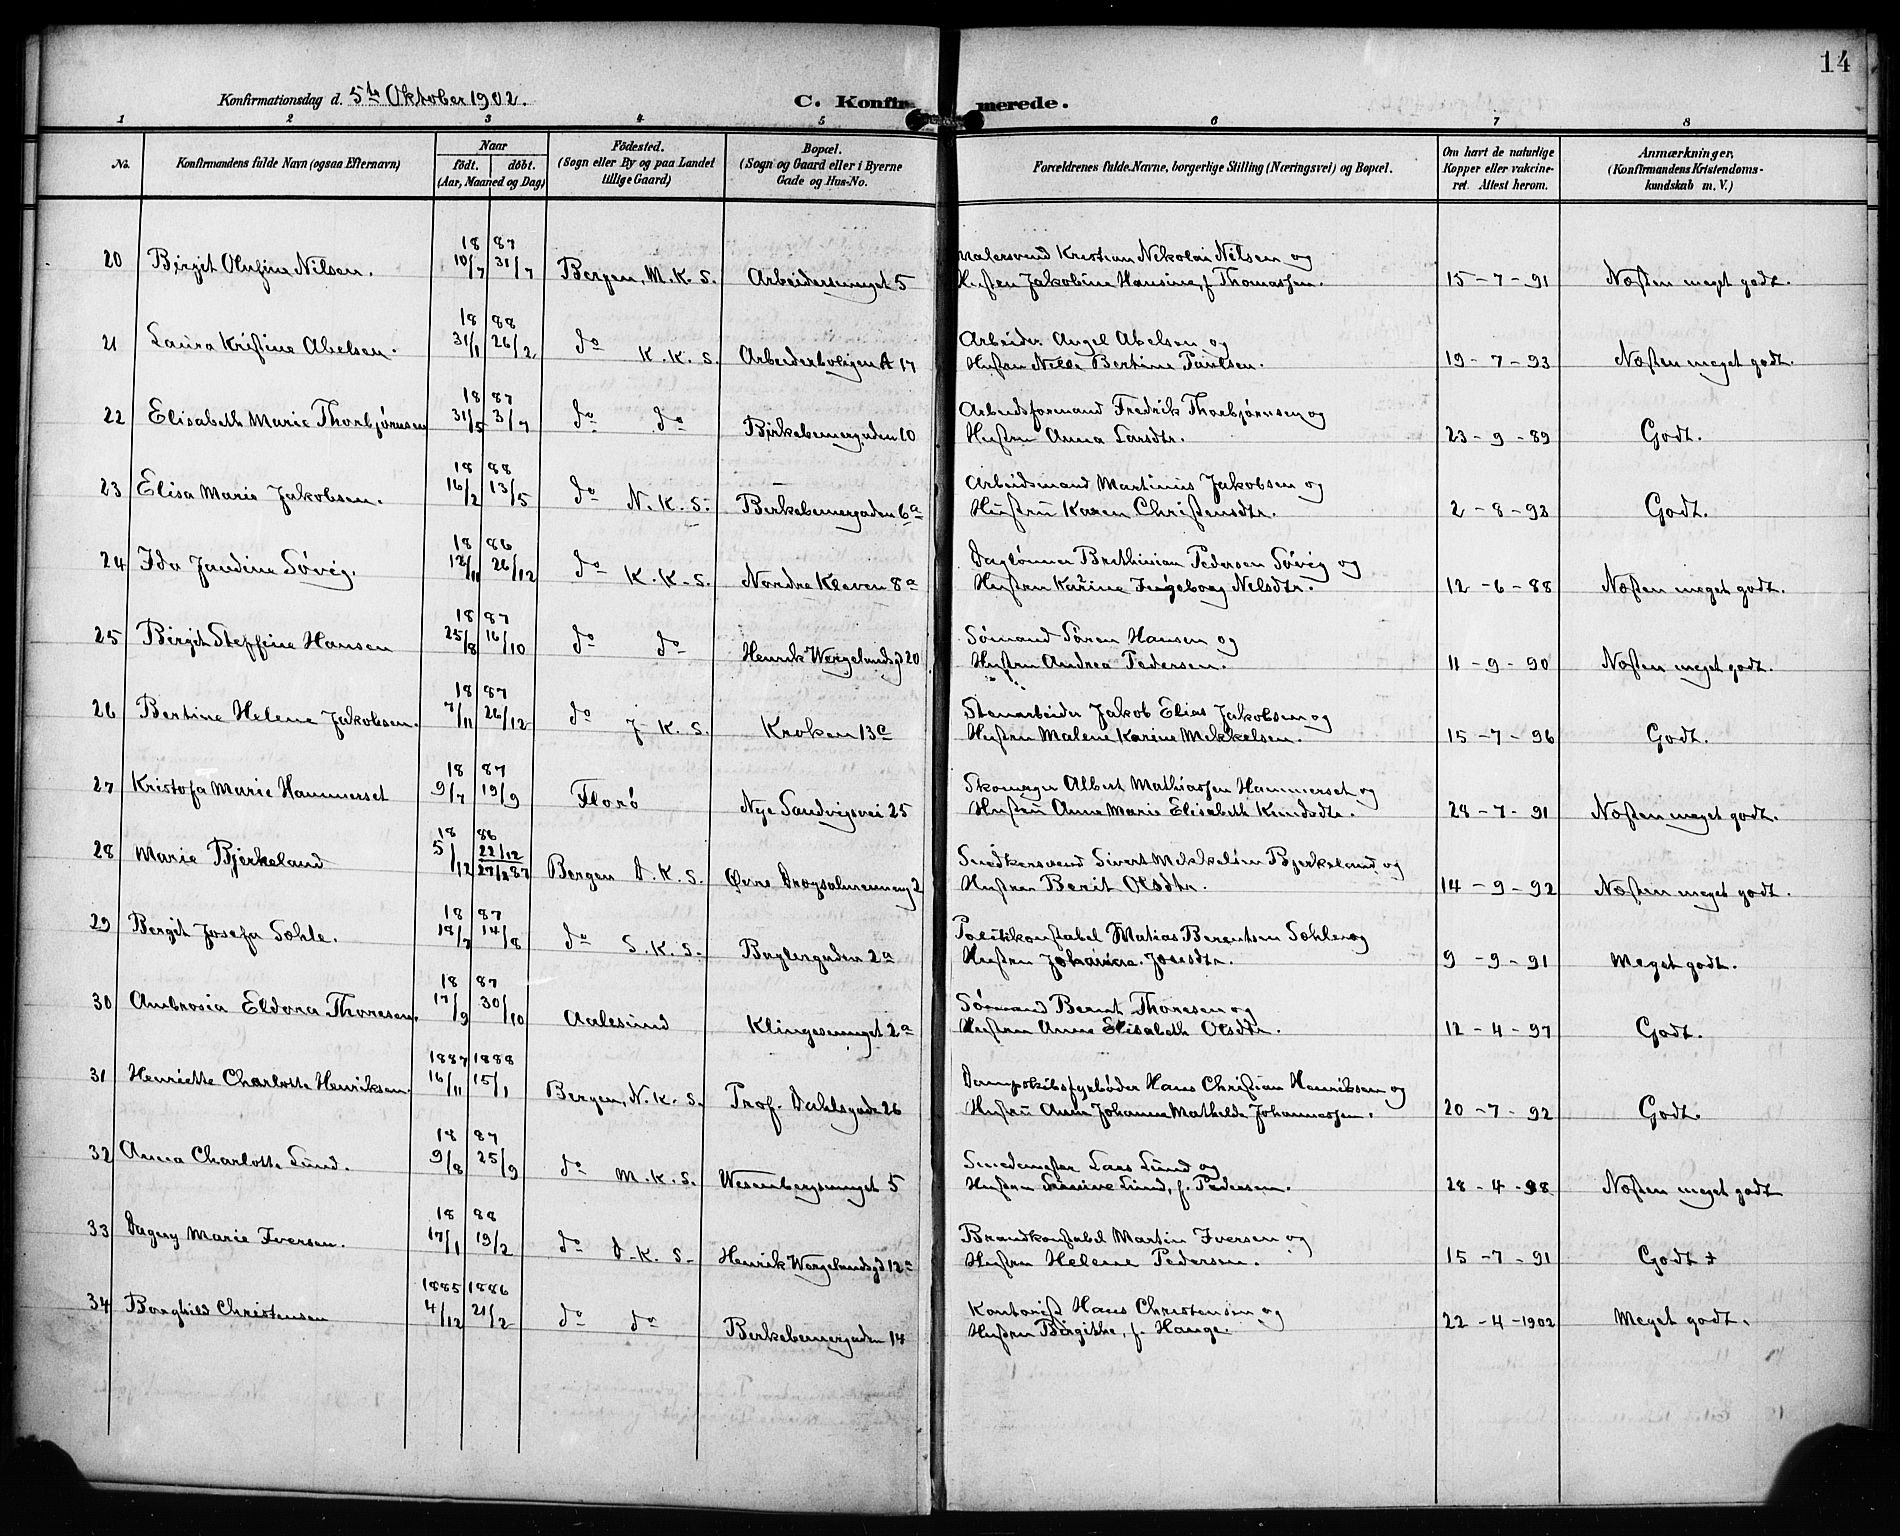 14
Konfirmationsdag d. 5te Oktober 1902.
C. Konfirmerede.
1 2 3 4 5 6 7 8
No. Konfirmandens fulde Navn (ogsaa Efternavn) Naar født. døbt. (Aar, Maaned og Dag) Fødested. (Sogn eller By og paa Landet tillige Gaard) Bopæl. (Sogn og Gaard eller i Byerne Gade og Hus-No. Forældrenes fulde Navne, borgerlige Stilling (Næringsvei) og Bopæl. Om havt de naturlige Kopper eller vaccineret. Attest herom. Anmærkninger, (Konfirmandens Kristendomskundskab m. V.)
18 87
20 Birgit Olufine Nilsen. 10/7 31/7 Bergen, M. K. S. Arbeidersmuget 5 Malersvend Kristian Nikolai Nilsen og
Hustru Jakobine Hansine, f. Thomassen. 15-7-91 Næsten meget godt.
18 88
21 Laura Kristine Abelsen. 31/1 26/2 do K. K. S. Arbeiderboligen A 17 Arbeider Angel Abelsen og
Hustru Bertine Paulsen. 19-7-93 Næsten meget godt.
18 87
22 Elisabeth Marie Thorbjørnsen 31/5 3/7 do do Birkebeinergaden 10 Arbeidsformand Fredrik Thorbjørnsen og
Hustru Anna Larsdtr. 23-9-89 Godt.
18 88
23 Elisa Marie Jakobsen. 16/2 13/5 do N. K. S. Birkebeinergaden 6a Arbeidsmand Martinius Jakobsen og
Hustru Karen Christensdtr. 2-8-93 Godt.
18 86
24 Ida Jandine Søvig. 12/11 26/12 do K. K. S. Nordre Kleven 8a Daglønner Pedersen Søvig og
Hustru Karine Ingeborg Nilsdtr. 12-6-88 Næsten meget godt.
18 87
25 Birgit Steffine Hansen 25/8 16/10 do do Henrik Wergelandsgd 20 Sømand Søren Hansen og
Hustru Andrea Pedersen. 11-9-90 Næsten meget godt.
18 87
26 Bertine Helene Jakobsen. 7/11 26/12 do J. K. S. Kroken 13c Stenarbeider Jakob Elias Jakobsen og
Hustru Malene Karine Mikkelsen. 15-7-96 Godt.
18 87
27 Kristofa Marie Hammerset 9/7 19/9 Florø Nye Sandvigsvei 25 Skomager Albert Mathiassen Hammerset og
Hustru Anne Marie Elisabeth Knudsdtr. 28-7-91 Næsten meget godt.
18 86
28 Marie Bjerkeland 5/12 22/12 Bergen D. K. S. Øvre Dragsalmenning 2 Snedkersvend Sivert Mikkelsen Bjerkeland og
Hustru Berit Olsdtr. 14-9-92 Næsten meget godt.
18 87
29 Bergit Josefa Sohle. 18/7 14/8 do S. K. S. Baglergaden 2a Politikonstabel Matias Berentsen Sohle og
Hustru Johanna 9-9-91 Meget godt.
18 87
30 Ambrosia Eldora Thoresen. 17/9 30/10 Aalesund Klingesmuget 2a Sømand Bernt Thoresen og
Hustru Anne Elisabeth Olsdtr. 12-4-97 Godt.
1887 1888
31 Henriette Charlotte Henriksen. 16/11 15/1 Bergen, N. K. S. Prof. Dahlsgade 26 Dampskibsfyrbøder Hans Christian Henriksen og
Hustru Anne Johanne Mathilde Johannessen. 20-7-92 Godt.
18 87
32 Anna Charlotte Lund. 9/8 25/9 do M. K. S. Wesenbergsmuget 5 Smedemester Lars Lund og
Hustru Lund, f. Pedersen. 28-4-98 Næsten meget godt
18 88
33 Dagny Marie Iversen. 17/1 19/2 do D. K. S. Henrik Wergelandsgd 12a Brandkonstabel Martin Iversen og
Hustru Helene Pedersen. 15-7-91 Godt +
1885 1886
34 Borghild Christensen 4/12 21/2 do do Birkebeinergaden 14 Kontorist Hans Christensen og
Hustru Birgithe, f. Hauge. 22-4-1902 Meget godt.